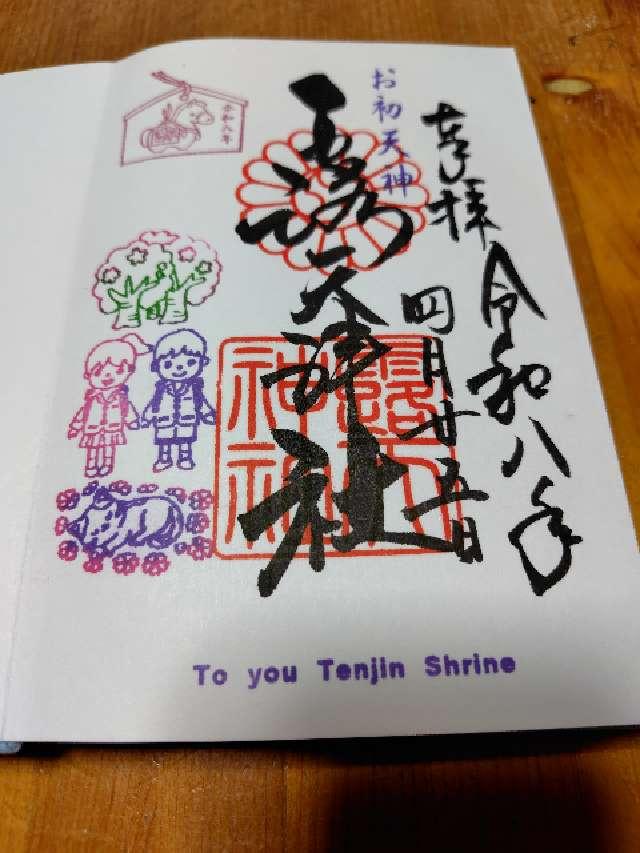 奉拝
令和八年
四月廿五日
お初天神
露天神社
令和八年
To you Tenjin Shrine